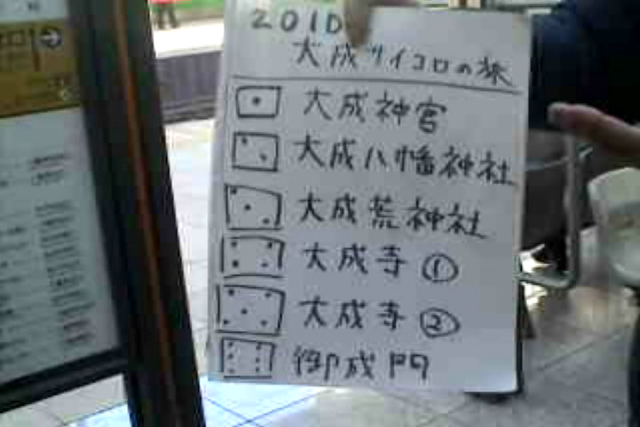 2010
大成サイコロの旅
大成神宮
大成八幡神社
大成荒神社
大成寺①
大成寺②
御成門